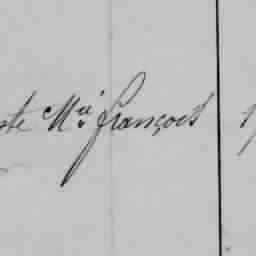 ste Mie françois 1